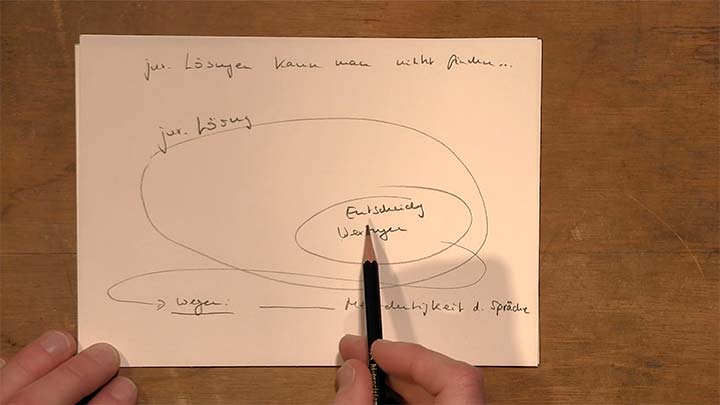 jur. Lösungen kann man nicht finden...
jur. Lösung
Entscheidg
Wertungen
wegen:
Mehrdeutigkeit d. Sprache